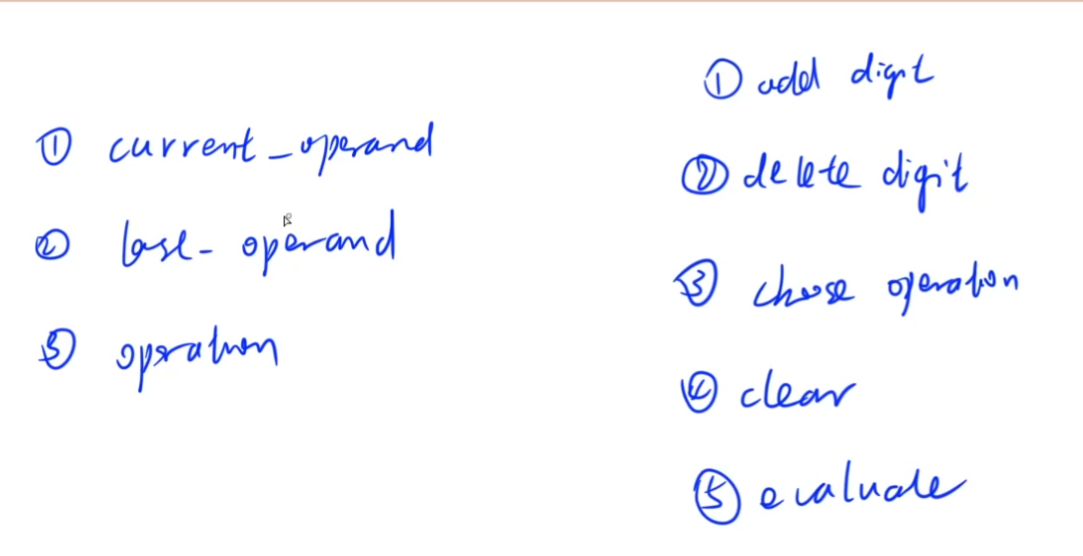 ① current_operand
② last_operand
③ operation
① add digit
② delete digit
③ choose operation
④ clear
⑤ evaluate